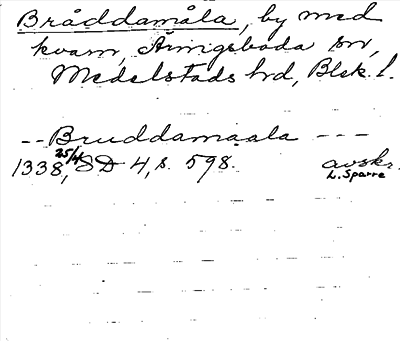 Bråddamåla, by med
kvarn, Åringsboda sn,
Medelstads hrd, Blek. l.
-- Bruddamaala ---
1338, 25/4 SD 4, s. 598. avskr.
L. Sparre